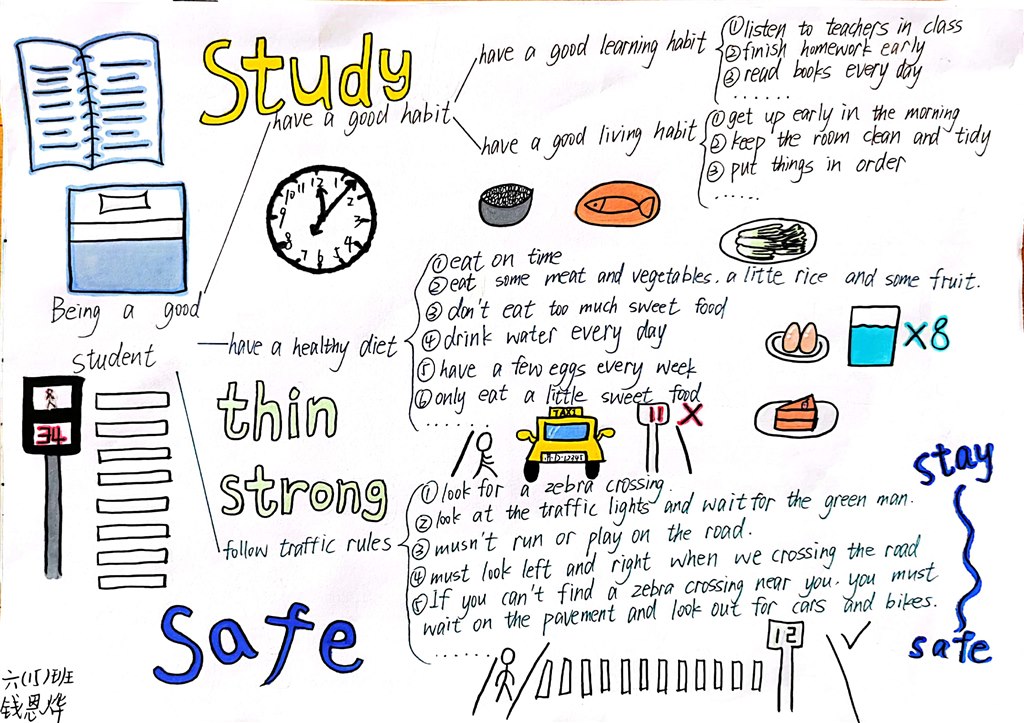 Study
have a good habit
have a good learning habit
①listen to teachers in class
②finish homework early
③read books every day
......
have a good living habit
①get up early in the morning
②keep the room clean and tidy
③put things in order
......
12 1 2 3 4 5 6 7 8 9 10 11
Being a good
student
have a healthy diet
①eat on time
②eat some meat and vegetables. a litte rice and some fruit.
③don't eat too much sweet food
④drink water every day
⑤have a few eggs every week
⑥only eat a little sweet food
......
X8
34
thin
strong
TAXI
11 X
follow traffic rules
①look for a zebra crossing
②look at the traffic lights and wait for the green man.
③musn't run or play on the road.
④must look left and right when we crossing the road
⑤If you can't find a zebra crossing near you. you must
wait on the pavement and look out for cars and bikes.
......
stay
safe
Safe
12
六(15)班
钱恩烨